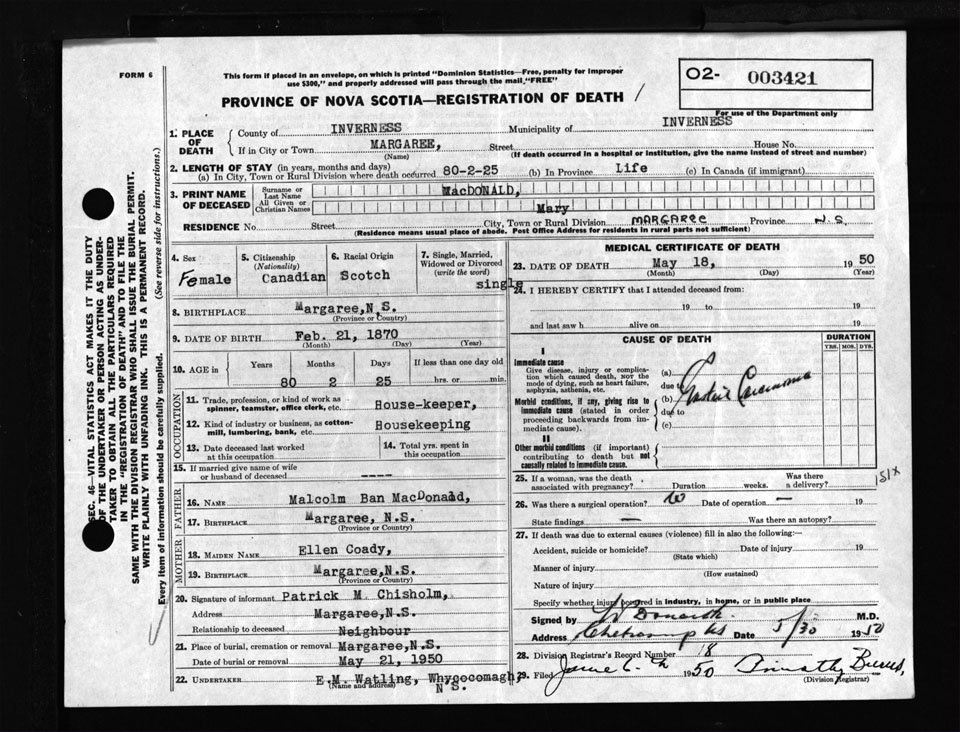 FORM 6
This form if placed in an envelope, on which is printed "Dominion Statistics—Free, penalty for improper
use $300," and properly addressed will pass through the mail "FREE"
O2- 003421
For use of the Department only
PROVINCE OF NOVA SCOTIA—REGISTRATION OF DEATH
1. PLACE OF DEATH
County of INVERNESS Municipality of INVERNESS
If in City or Town MARGAREE, Street House No.
(Name) (If death occurred in a hospital or institution, give the name instead of street and number)
2. LENGTH OF STAY (in years, months and days)
(a) In City, Town or Rural Division where death occurred 80-2-25 (b) In Province Life (c) In Canada (if immigrant)
3. PRINT NAME OF DECEASED
Surname or Last Name MacDONALD,
All Given or Christian Names Mary
RESIDENCE No. Street City, Town or Rural Division MARGAREE Province N.S.
(Residence means usual place of abode. Post Office Address for residents in rural parts not sufficient)
4. Sex Female
5. Citizenship (Nationality) Canadian
6. Racial Origin Scotch
7. Single, Married, Widowed or Divorced (write the word) single
8. BIRTHPLACE Margaree,N.S.
(Province or Country)
9. DATE OF BIRTH Feb. 21, 1870
(Month) (Day) (Year)
10. AGE in Years Months Days If less than one day old
80 2 25 hrs. or min.
OCCUPATION
11. Trade, profession, or kind of work as
spinner, teamster, office clerk, etc. House-keeper,
12. Kind of industry or business, as cotton-
mill, lumbering, bank, etc. Housekeeping
13. Date deceased last worked
at this occupation
14. Total yrs. spent in
this occupation
15. If married give name of wife
or husband of deceased ----
FATHER
16. NAME Malcolm Ban MacDonald,
17. BIRTHPLACE Margaree, N.S.
(Province or Country)
MOTHER
18. MAIDEN NAME Ellen Coady,
19. BIRTHPLACE Margaree,N.S.
(Province or Country)
20. Signature of informant Patrick M. Chisholm,
Address Margaree,N.S.
Relationship to deceased Neighbour
21. Place of burial, cremation or removal Margaree,N.S.
Date of burial or removal May 21, 1950
22. UNDERTAKER E.M. Watling, Whycocomagh,
(Name and address) N S.
MEDICAL CERTIFICATE OF DEATH
23. DATE OF DEATH May 18, 1950
(Month) (Day) (Year)
24. I HEREBY CERTIFY that I attended deceased from:
19 to 19
and last saw h alive on 19
CAUSE OF DEATH
DURATION
YRS. MOS. DYS.
I
Immediate cause
Give disease, injury or complica-
tion which caused death, NOT the
mode of dying, such as heart failure,
asphyxia, asthenia, etc.
(a)
due to
Morbid conditions, if any, giving rise to
immediate cause (stated in order
proceeding backwards from im-
mediate cause).
(b)
due to
(c)
Carcinoma
II
Other morbid conditions (if important)
contributing to death but not
causally related to immediate cause.
25. If a woman, was the death
associated with pregnancy? Duration weeks. Was there a delivery?
151X
26. Was there a surgical operation? No Date of operation — 19
State findings — Was there an autopsy?
27. If death was due to external causes (violence) fill in also the following:—
Accident, suicide or homicide? Date of injury 19
(State which)
Manner of injury
(How sustained)
Nature of injury
Specify whether injury occurred in industry, in home, or in public place
Signed by M.D.
Address Date 5/30 1950
28. Division Registrar's Record Number 18
29. Filed June 1950 Timothy
(Division Registrar)
SEC. 46—VITAL STATISTICS ACT MAKES IT THE DUTY
OF THE UNDERTAKER OR PERSON ACTING AS UNDER-
TAKER TO OBTAIN ALL THE PARTICULARS REQUIRED
IN THE "REGISTRATION OF DEATH" AND TO FILE THE
SAME WITH THE DIVISION REGISTRAR WHO SHALL ISSUE THE BURIAL PERMIT.
WRITE PLAINLY WITH UNFADING INK. THIS IS A PERMANENT RECORD.
Every item of information should be carefully supplied. (See reverse side for instructions.)